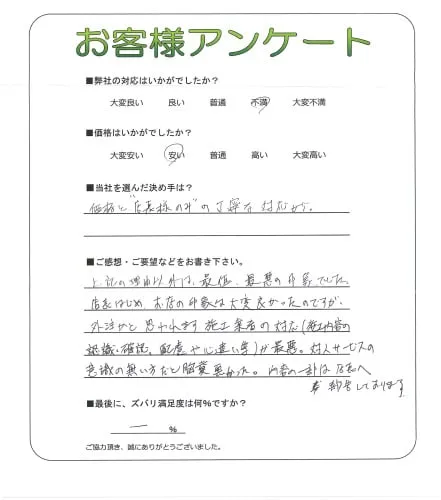 お客様アンケート
■弊社の対応はいかがでしたか？
大変良い 良い 普通 不満 大変不満
■価格はいかがでしたか？
大変安い 安い 普通 高い 大変高い
■当社を選んだ決め手は？
価格と"店長様のみ"の丁寧な対応から。
■ご感想・ご要望などをお書き下さい。
上記の理由以外は、最低、最悪の印象でした。
店長はじめ、お店の印象は大変良かったのですが、
外注かと思われます施工業者の対応（施工内容の
認識・確認、配慮や心遣い等）が最悪。対人サービスの
意識の無い方だと 悪かった。内容の一部は店長へ
報告しております
■最後に、ズバリ満足度は何％ですか？
— %
ご協力頂き、誠にありがとうございました。